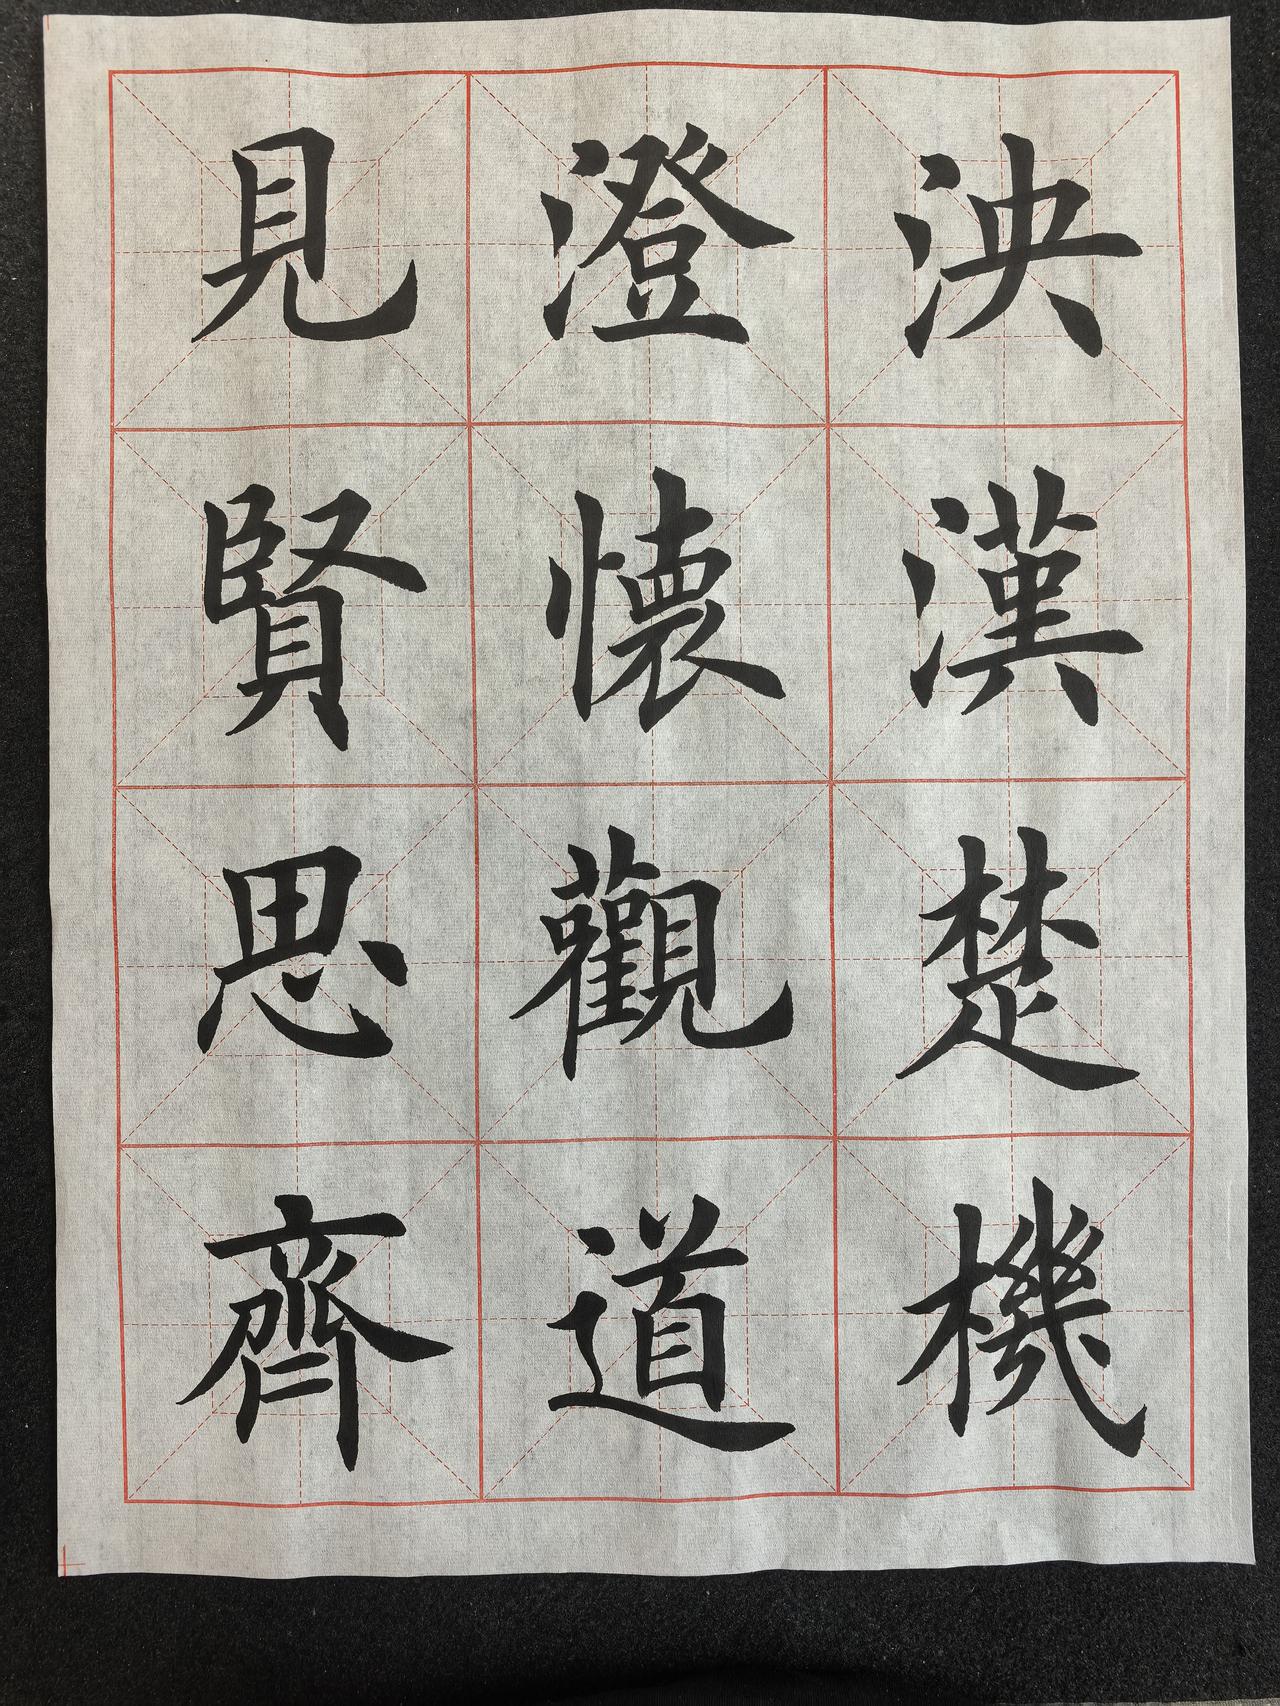 泱漢楚機
澄懷觀道
見賢思齊